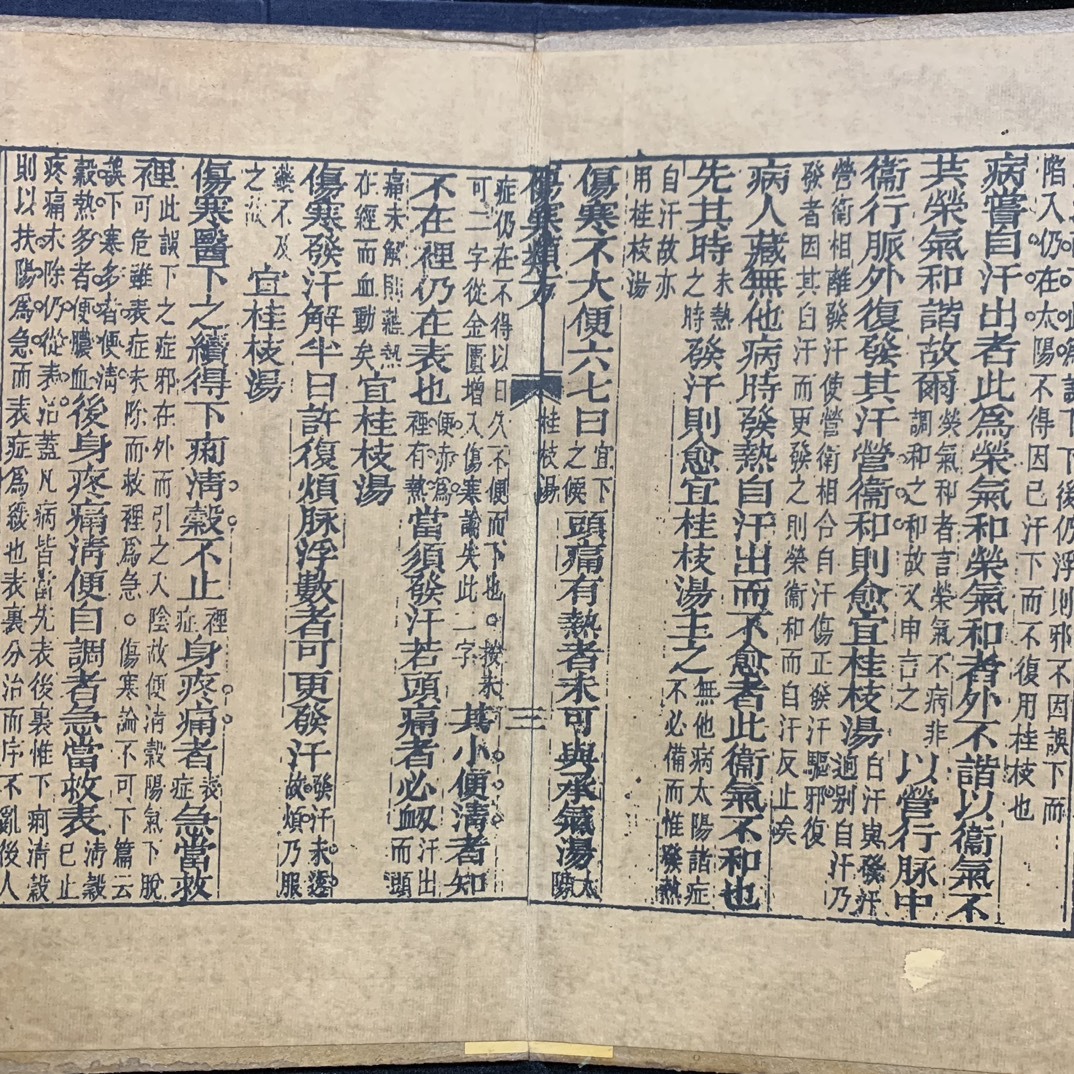 誤下下後仍浮則邪不因誤下而
陷入仍在太陽不得因已汗下而不復用桂枝也
病嘗自汗出者此爲榮氣和榮氣和者外不諧以衞氣不
共榮氣和諧故爾榮氣和者言榮氣不病非調和之和故又申言之以營行脉中
衞行脉外復發其汗營衞和則愈宜桂枝湯自汗與發汗迥别自汗乃
營衛相離發汗使營衛相合自汗傷正發汗驅邪復
發者因其自汗而更發之則榮衞和而自汗反止矣
病人藏無他病時發熱自汗出而不愈者此衞氣不和也
先其時未熱之時發汗則愈宜桂枝湯主之無他病太陽諸症不必備而惟發熱
自汗故亦用桂枝湯
傷寒不大便六七日宜下之候頭痛有熱者未可與承氣湯太陽
傷寒類方 桂枝湯 三
症仍在不得以日久不便而下也。按未可二字從金匱增入傷寒論失此一字其小便淸者知
不在裡仍在表也便赤爲裡有熱當須發汗若頭痛者必衂汗出而頭
痛未解則蘊熱在經而血動矣宜桂枝湯
傷寒發汗解半日許復煩脉浮數者可更發汗發汗未透故煩乃服
藥不及之故宜桂枝湯
傷寒醫下之續得下痢淸穀不止裡症身疼痛者表症急當救
裡此誤下之症邪在外而引之入陰故便淸穀陽氣下脫可危雖表症未除而救裡爲急。傷寒論不可下篇云
誤下寒多者便淸穀熱多者便膿血後身疼痛淸便自調者急當救表淸穀已止
疼痛未除仍從表治蓋凡病皆當先表後裏惟下痢淸穀
則以扶陽爲急而表症爲緩也表裏分治而序不亂後人